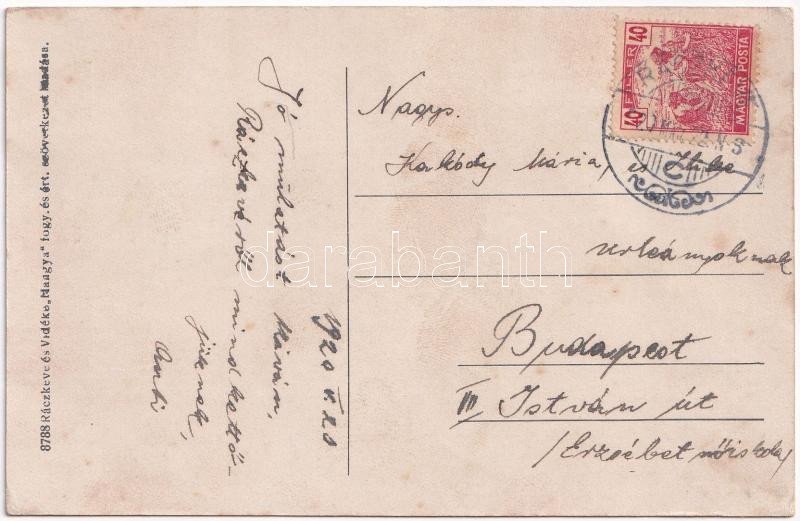 8788 Ráczkeve és Vidéke „Hangya" fogy. és ért. szövetkezet kiadása.
Jó mulatást kiván,
Ráczkevéről mindkettő-
jüknek,
Anti
1920 V. 28
40 FILLÉR 40
MAGYAR POSTA
RÁCZKEVE
Nagys.
Kakódy Mária, és Ilke
urleányoknak
Budapest
VII István út
/Erzsébet nőiskola/
darabanth